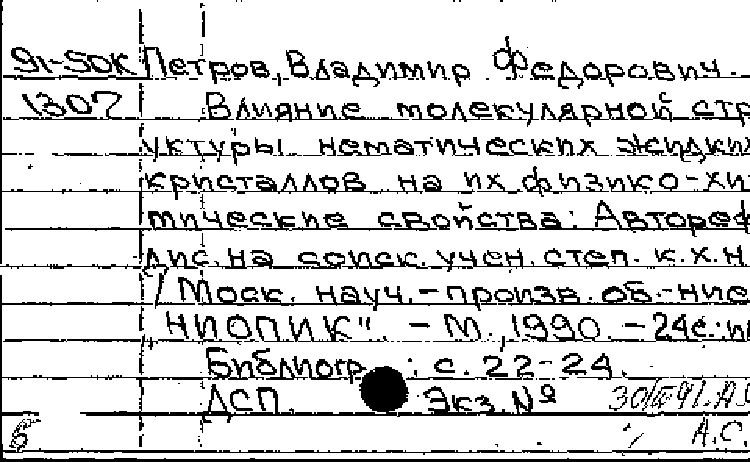 91-50К Петров, Владимир Федорович.
1307 Влияние молекулярной стр
уктуры нематических жидких
кристаллов на их физико-хи
мические свойства: Автореф
дис. на соиск. учен. степ. к.х.н
/ Моск. науч.-произв. об.-ние
"НИОПИК". - М., 1990. - 24с.:и
Библиогр.: с. 22-24.
ДСП. Экз. №
А.С.
Б